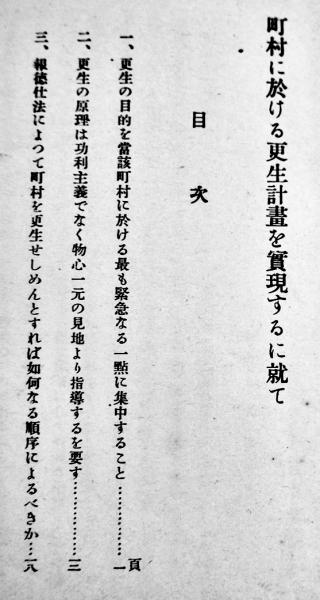 町村に於ける更生計畫を實現するに就て
目次
頁
一、更生の目的を當該町村に於ける最も緊急なる一點に集中すること………………一
二、更生の原理は功利主義でなく物心一元の見地より指導するを要す………………三
三、報德仕法によつて町村を更生せしめんとすれば如何なる順序によるべきか…一八